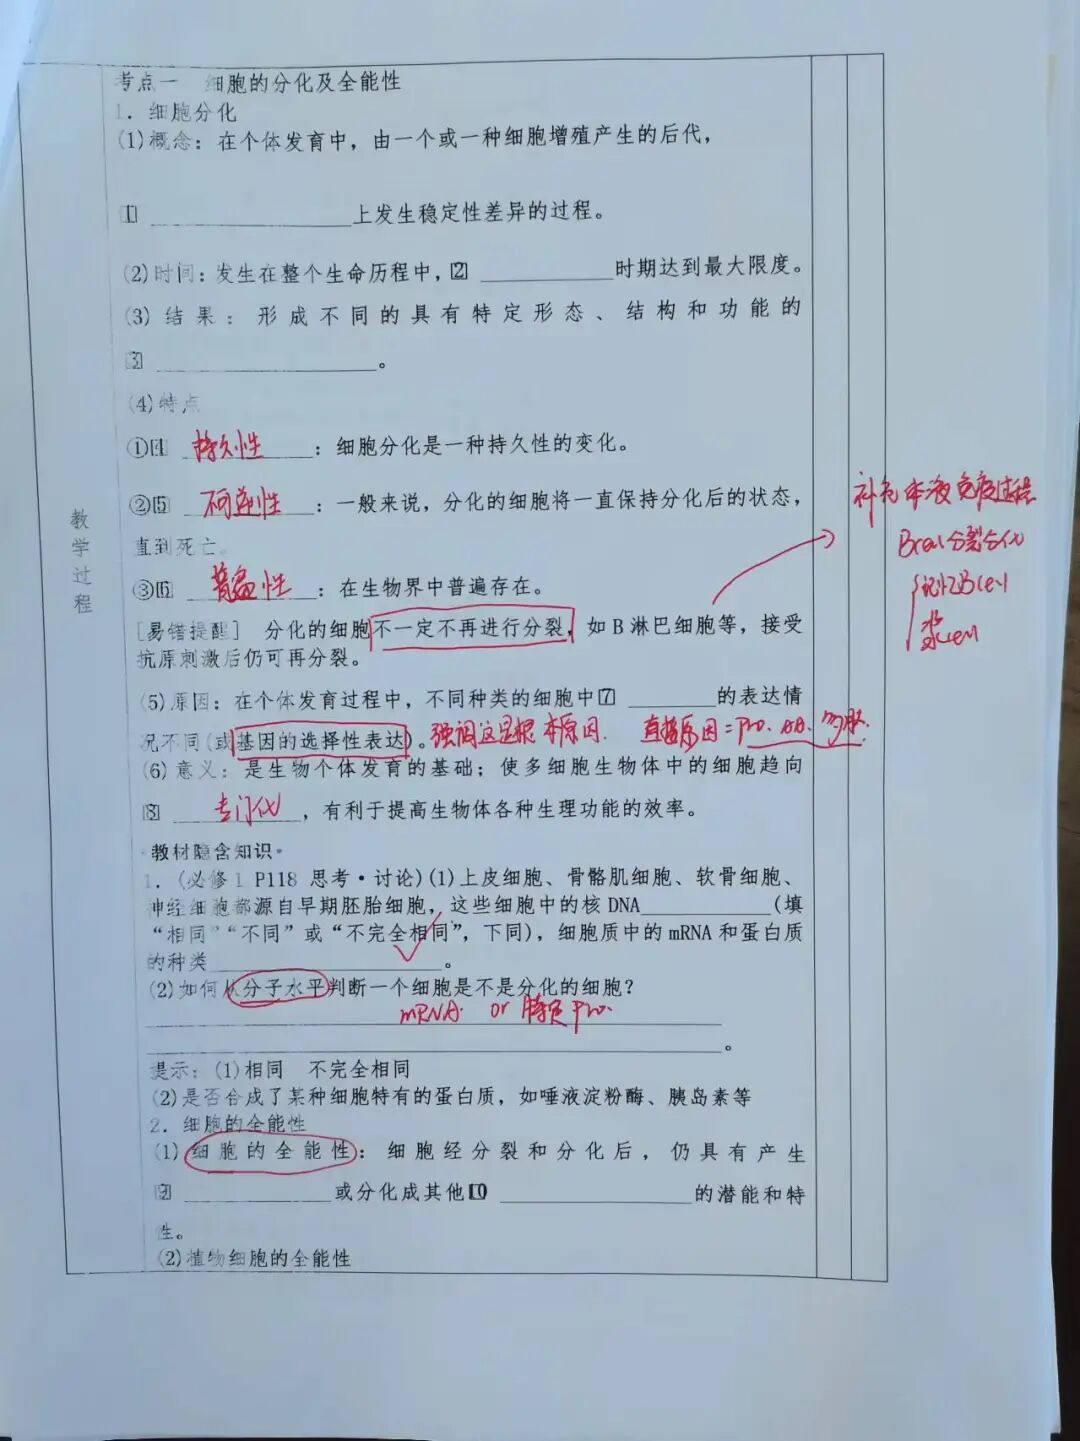 考点一 细胞的分化及全能性
1．细胞分化
(1)概念：在个体发育中，由一个或一种细胞增殖产生的后代，
1 ________________上发生稳定性差异的过程。
(2)时间：发生在整个生命历程中，2 ____________时期达到最大限度。
(3)结果：形成不同的具有特定形态、结构和功能的
3 ____________________。
(4)特点
①4 持久性：细胞分化是一种持久性的变化。
②5 不可逆性：一般来说，分化的细胞将一直保持分化后的状态，
直到死亡。
③6 普遍性：在生物界中普遍存在。
[易错提醒] 分化的细胞不一定不再进行分裂，如B淋巴细胞等，接受
抗原刺激后仍可再分裂。
补充体液免疫过程
Bcell分裂分化
记忆Bcell
浆cell
教学过程
(5)原因：在个体发育过程中，不同种类的细胞中7 ________的表达情
况不同(或基因的选择性表达)。强调这是根本原因. 直接原因=pro.
(6)意义：是生物个体发育的基础；使多细胞生物体中的细胞趋向
8 专门化，有利于提高生物体各种生理功能的效率。
·教材隐含知识·
1．(必修1 P118 思考·讨论)(1)上皮细胞、骨骼肌细胞、软骨细胞、
神经细胞都源自早期胚胎细胞，这些细胞中的核DNA____________(填
“相同”“不同”或“不完全相同”，下同)，细胞质中的mRNA和蛋白质
的种类____________________。
(2)如何从分子水平判断一个细胞是不是分化的细胞？
mRNA. or 特定pro.
____________________。
提示：(1)相同 不完全相同
(2)是否合成了某种细胞特有的蛋白质，如唾液淀粉酶、胰岛素等
2．细胞的全能性
(1)细胞的全能性：细胞经分裂和分化后，仍具有产生
9 ____________或分化成其他10 ________________的潜能和特
性。
(2)植物细胞的全能性